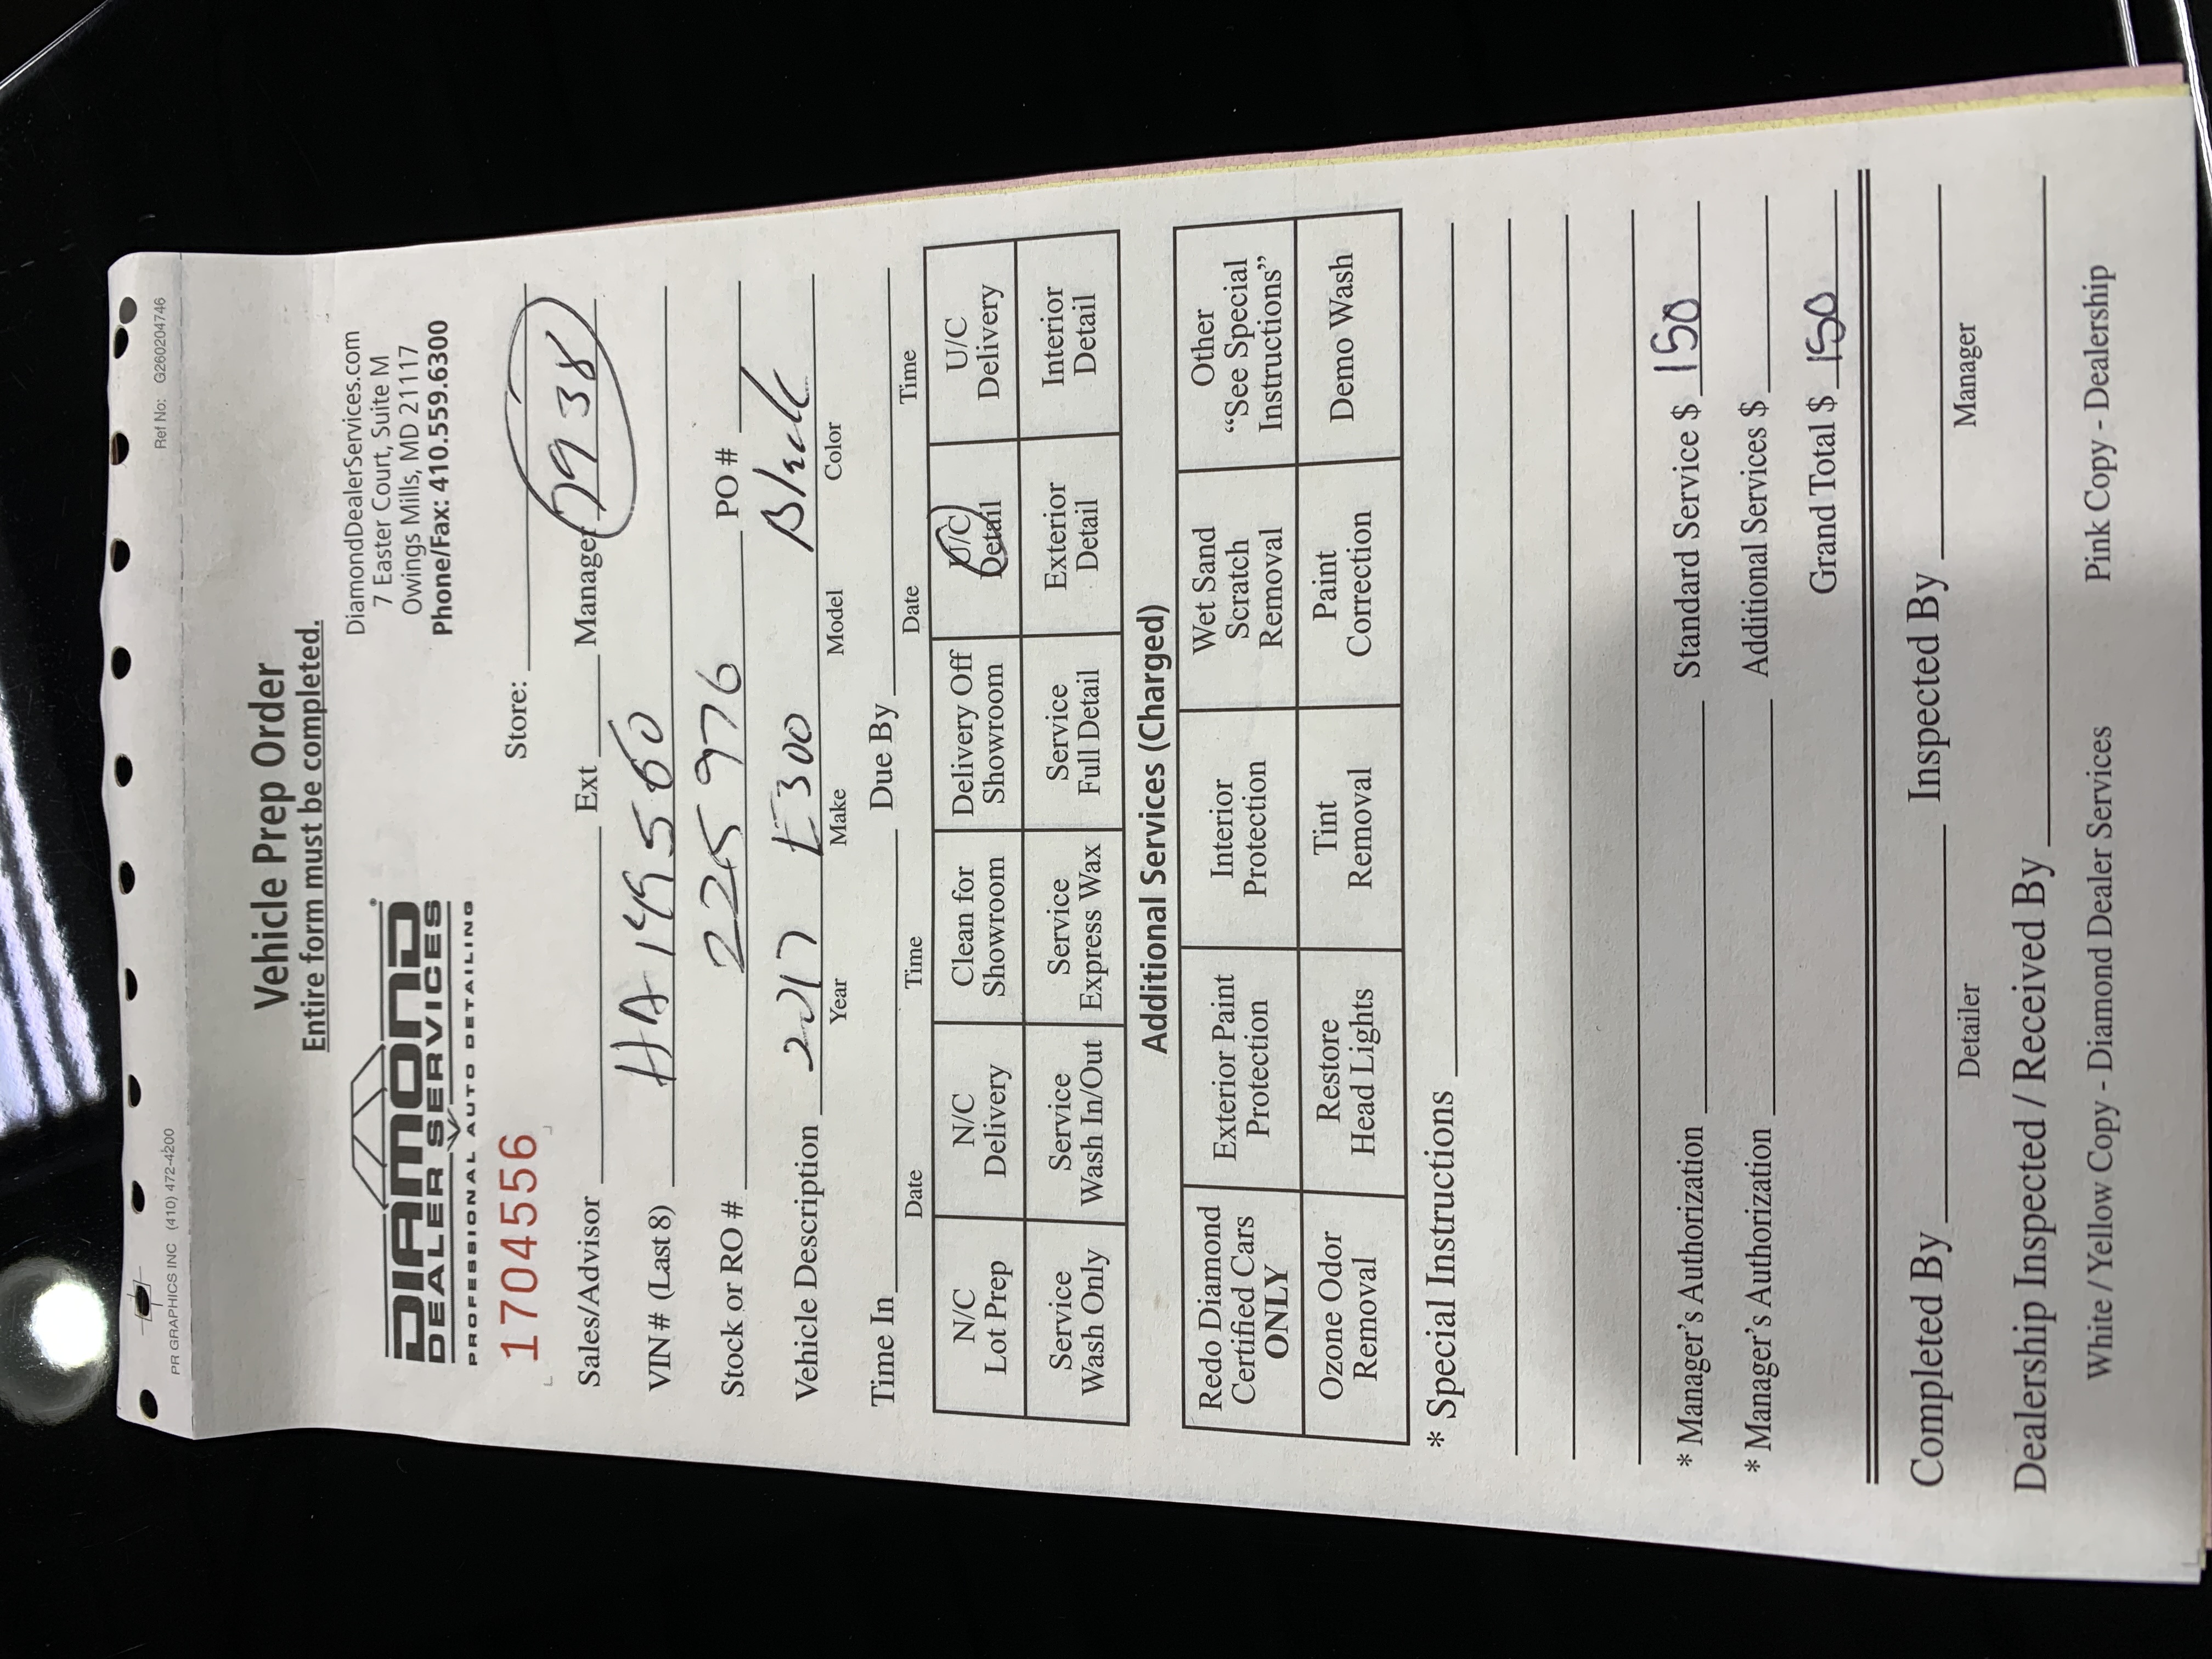 PR GRAPHICS INC (410) 472-4200 Ref No: G260204746
Vehicle Prep Order
Entire form must be completed.
DIAMOND
DEALER SERVICES
PROFESSIONAL AUTO DETAILING
DiamondDealerServices.com
7 Easter Court, Suite M
Owings Mills, MD 21117
Phone/Fax: 410.559.6300
1704556 Store:
Sales/Advisor Ext Manager 7938
VIN # (Last 8) HA 149560
Stock or RO # 225976 PO #
Vehicle Description 2017 E300 Black
Year Make Model Color
Time In Due By
Date Time Date Time
N/C Lot Prep N/C Delivery Clean for Showroom Delivery Off Showroom U/C Detail U/C Delivery
Service Wash Only Service Wash In/Out Service Express Wax Service Full Detail Exterior Detail Interior Detail
Additional Services (Charged)
Redo Diamond Certified Cars ONLY Exterior Paint Protection Interior Protection Wet Sand Scratch Removal Other "See Special Instructions"
Ozone Odor Removal Restore Head Lights Tint Removal Paint Correction Demo Wash
* Special Instructions
* Manager's Authorization Standard Service $ 150
* Manager's Authorization Additional Services $
Grand Total $ 150
Completed By Inspected By
Detailer Manager
Dealership Inspected / Received By
White / Yellow Copy - Diamond Dealer Services Pink Copy - Dealership